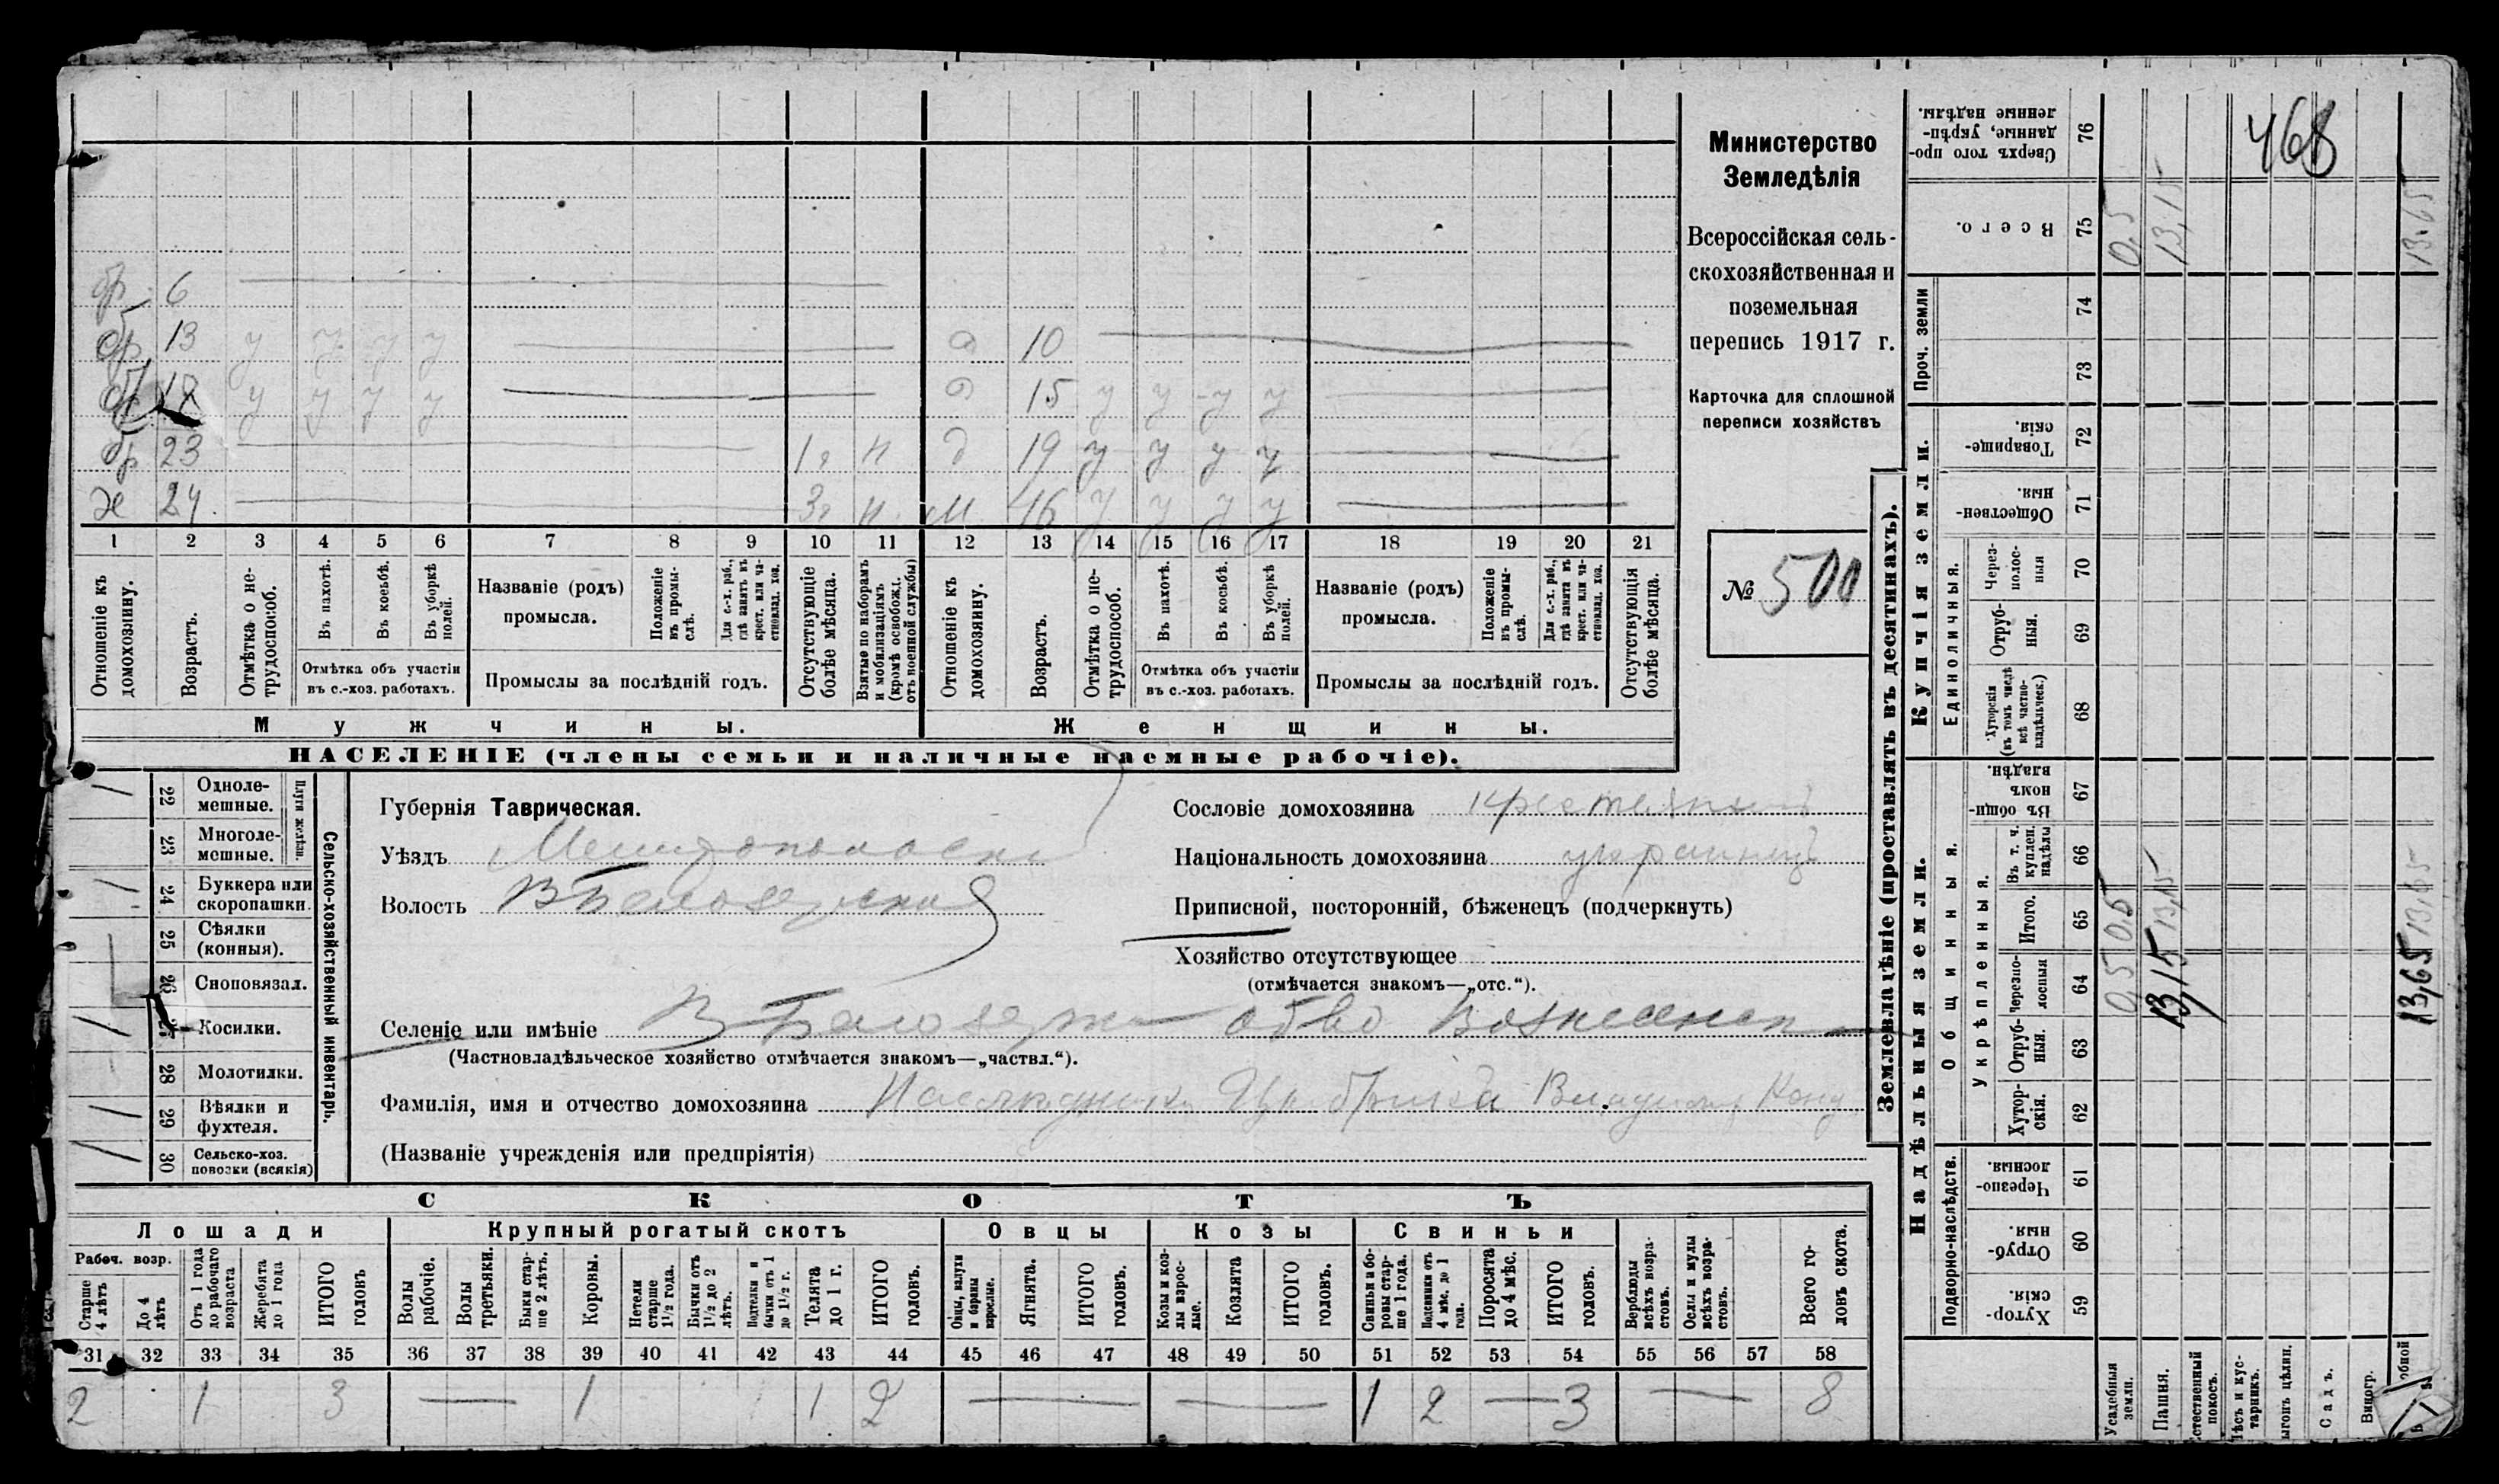 468
Министерство
Земледѣлія
Всероссійская сель-
скохозяйственная и
поземельная
перепись 1917 г.
Карточка для сплошной
переписи хозяйствъ
№ 500
бр 6
бр 13 у у у у д 10
у у у у д 15 у у у у
бр 23 1 г н д 19 у у у у
х 24 3 г н м 46 у у у у
1 2 3 4 5 6 7 8 9 10 11 12 13 14 15 16 17 18 19 20 21
Отношеніе къ домохозяину.
Возрастъ.
Отмѣтка о не-трудоспособ.
Въ пахотѣ.
Въ косьбѣ.
Въ уборкѣ полей.
Отмѣтка объ участіи
въ с.-хоз. работахъ.
Названіе (родъ)
промысла.
Положеніе въ промы-слѣ.
Для с.-х. раб., гдѣ занятъ въ крест. или ча-стновлад. хоз.
Промыслы за послѣдній годъ.
Отсутствующіе болѣе мѣсяца.
Взятые по наборамъ и мобилизаціямъ (кромѣ освобожд. отъ военной службы)
Отношеніе къ домохозяину.
Возрастъ.
Отмѣтка о не-трудоспособ.
Въ пахотѣ.
Въ косьбѣ.
Въ уборкѣ полей.
Отмѣтка объ участіи
въ с.-хоз. работахъ.
Названіе (родъ)
промысла.
Положеніе въ промы-слѣ.
Для с.-х. раб., гдѣ занята въ крест. или ча-стновлад. хоз.
Промыслы за послѣдній годъ.
Отсутствующія болѣе мѣсяца.
Мужчины.
Женщины.
НАСЕЛЕНІЕ (члены семьи и наличные наемные рабочіе).
22 Одноле-мешные.
23 Многоле-мешные.
Плуги желѣзн.
24 Буккера или скоропашки.
25 Сѣялки (конныя).
26 Сноповязал.
27 Косилки.
28 Молотилки.
29 Вѣялки и фухтеля.
30 Сельско-хоз. повозки (всякія)
Сельско-хозяйственный инвентарь.
Губернія Таврическая.
Уѣздъ Мелитопольскій
Волость В Белозерская
Сословіе домохозяина крестьянинъ
Національность домохозяина украинецъ
Приписной, посторонній, бѣженецъ (подчеркнуть)
Хозяйство отсутствующее
(отмѣчается знакомъ—„отс.“).
Селеніе или имѣніе В Белозерка об-во Вознесенск
(Частновладѣльческое хозяйство отмѣчается знакомъ—„частвл.“).
Фамилія, имя и отчество домохозяина
(Названіе учрежденія или предпріятія)
СКОТЪ
Лошади
Крупный рогатый скотъ
Овцы
Козы
Свиньи
Рабоч. возр.
Старше 4 лѣтъ
До 4 лѣтъ
Отъ 1 года до рабочаго возраста
Жеребята до 1 года
ИТОГО головъ
Волы рабочіе.
Волы третьяки.
Быки стар-ше 2 лѣтъ.
Коровы.
Нетели старше 1½ года.
Бычки отъ 1½ до 2 лѣтъ.
Подтелки и бычки отъ 1 до 1½ г.
Телята до 1 г.
ИТОГО головъ.
Овцы, валухи и бараны взрослые.
Ягнята.
ИТОГО головъ.
Козы и коз-лы взрос-лые.
Козлята
ИТОГО головъ.
Свиньи и бо-ровы стар-ше 1 года.
Подсвинки отъ 4 мѣс. до 1 года.
Поросята до 4 мѣс.
ИТОГО головъ.
Верблюды всѣхъ возра-стовъ.
Ослы и мулы всѣхъ возра-стовъ.
Всего го-ловъ скота.
31 32 33 34 35 36 37 38 39 40 41 42 43 44 45 46 47 48 49 50 51 52 53 54 55 56 57 58
2 1 3 — 1 1 2 — — 1 2 — 3 — 8
Землевладѣніе (проставлять въ десятинахъ).
Купчія земли.
Надѣльныя земли.
Сверхъ того про-данные, укрѣп-ленные надѣлы. 76
Всего. 75 0,5 13,15 13,65
Проч. земли
74
73
Товарище-скія. 72
Обществен-ныя. 71
Единоличныя.
Через-полос-ныя 70
Отруб-ныя. 69
Хуторскія (въ томъ числѣ всѣ частно-владѣльческ.) 68
Общинныя.
Въ общи-номъ владѣн. 67
Укрѣпленныя.
Въ т. ч. куплен. надѣлы 66
Итого. 65 0,5 13,15 13,65
Черезпо-лосныя 64 0,5 13,15 13,65
Отруб-ныя. 63
Хутор-скія. 62
Подворно-наслѣдств.
Черезпо-лосныя. 61
Отруб-ныя. 60
Хутор-скія. 59
Усадебныя земли.
Пашня.
Сад ъ.
Виногр.